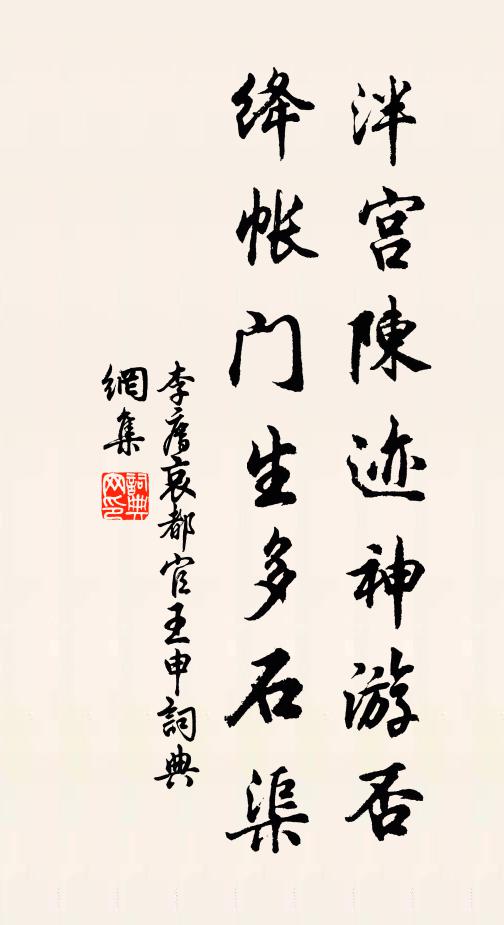 泮宫陳迹神游否
绛帐门生多石渠
李廌哀都官王申詞典
網集
詞典
网印